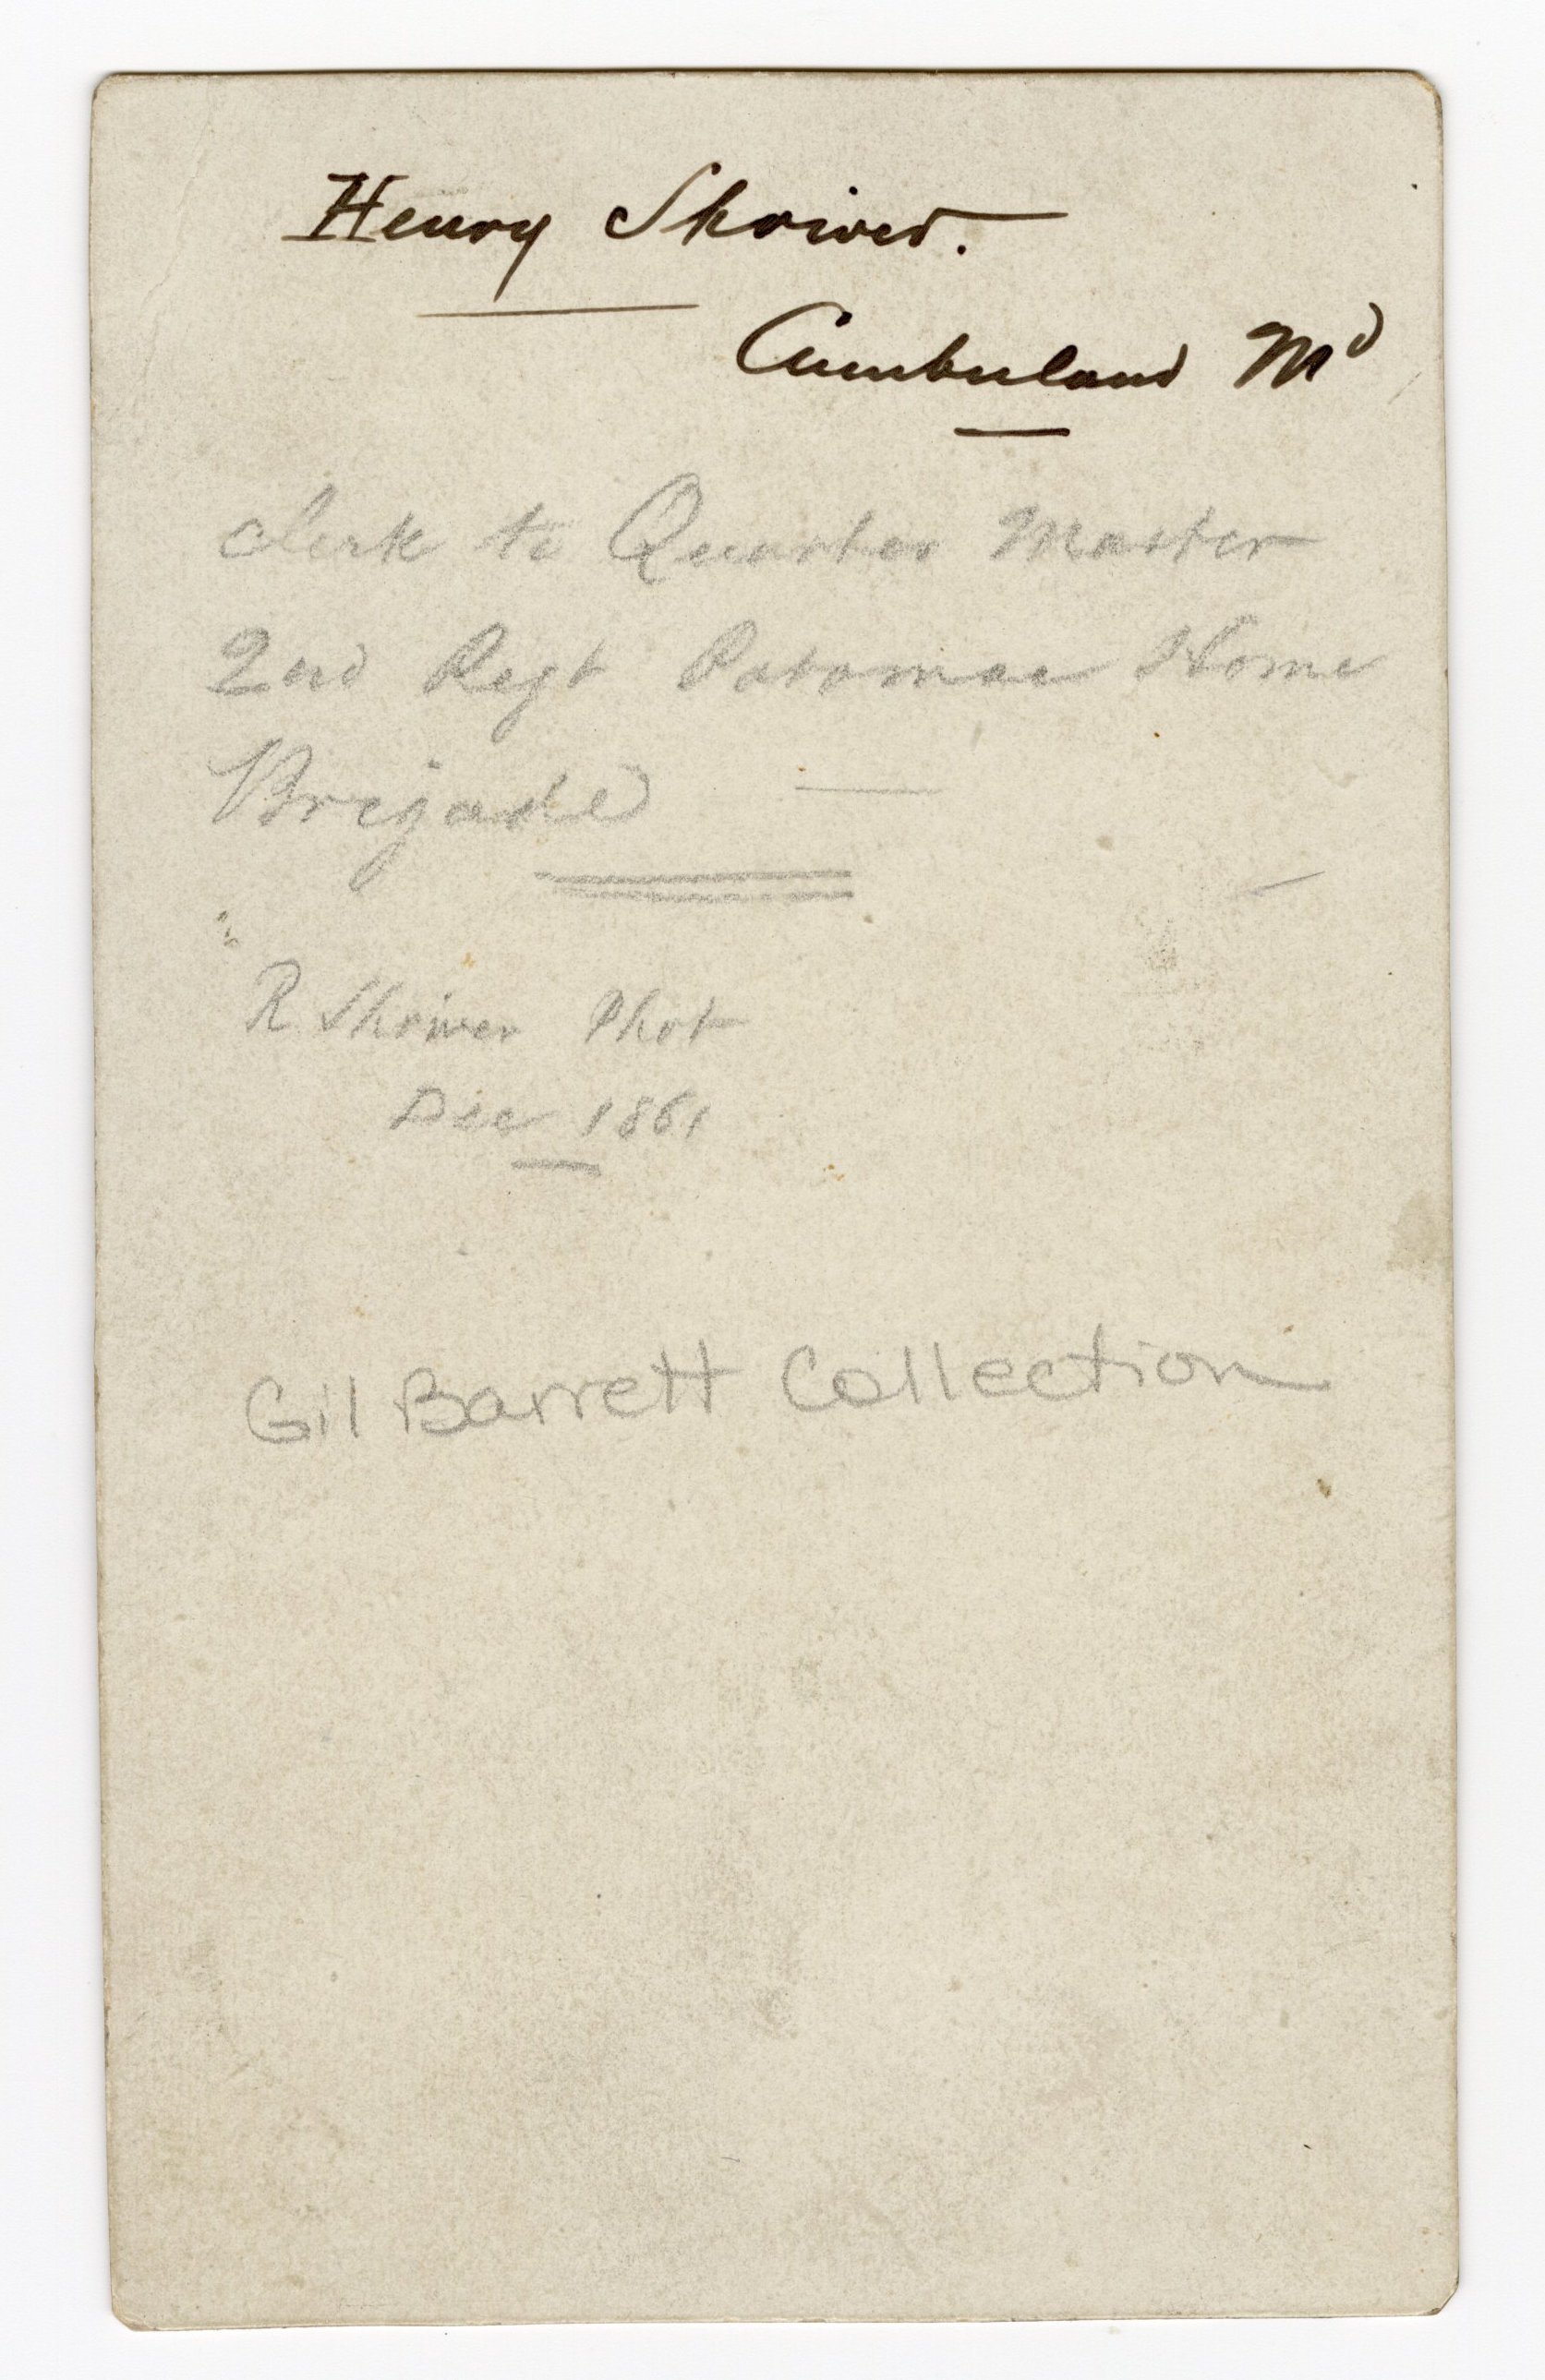 Henry Shriver.
Cumberland Md
Clerk to Quarter Master
2nd Regt Potomac Home
Brigade
R Shriver Phot
Dec 1861
Gil Barrett Collection